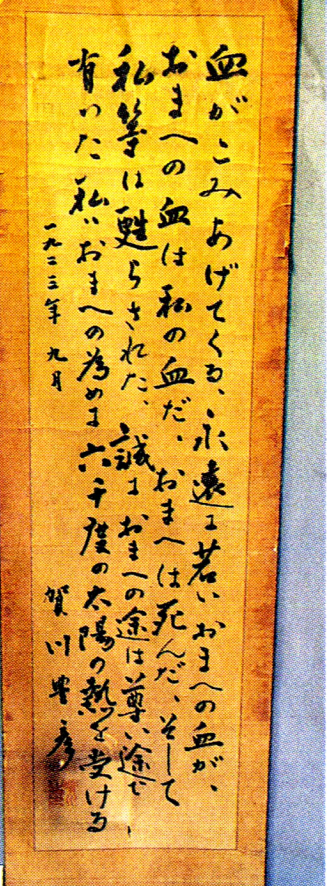 血がこみあげてくる、永遠に若いおまへの血が、
おまへの血は私の血だ、おまへは死んだ、そして
私等は甦らされた、誠におまへの途は尊い途で、
有つた 私はおまへの為めに六千度の太陽の熱を受ける
一九二三年 九月
賀川豊彦